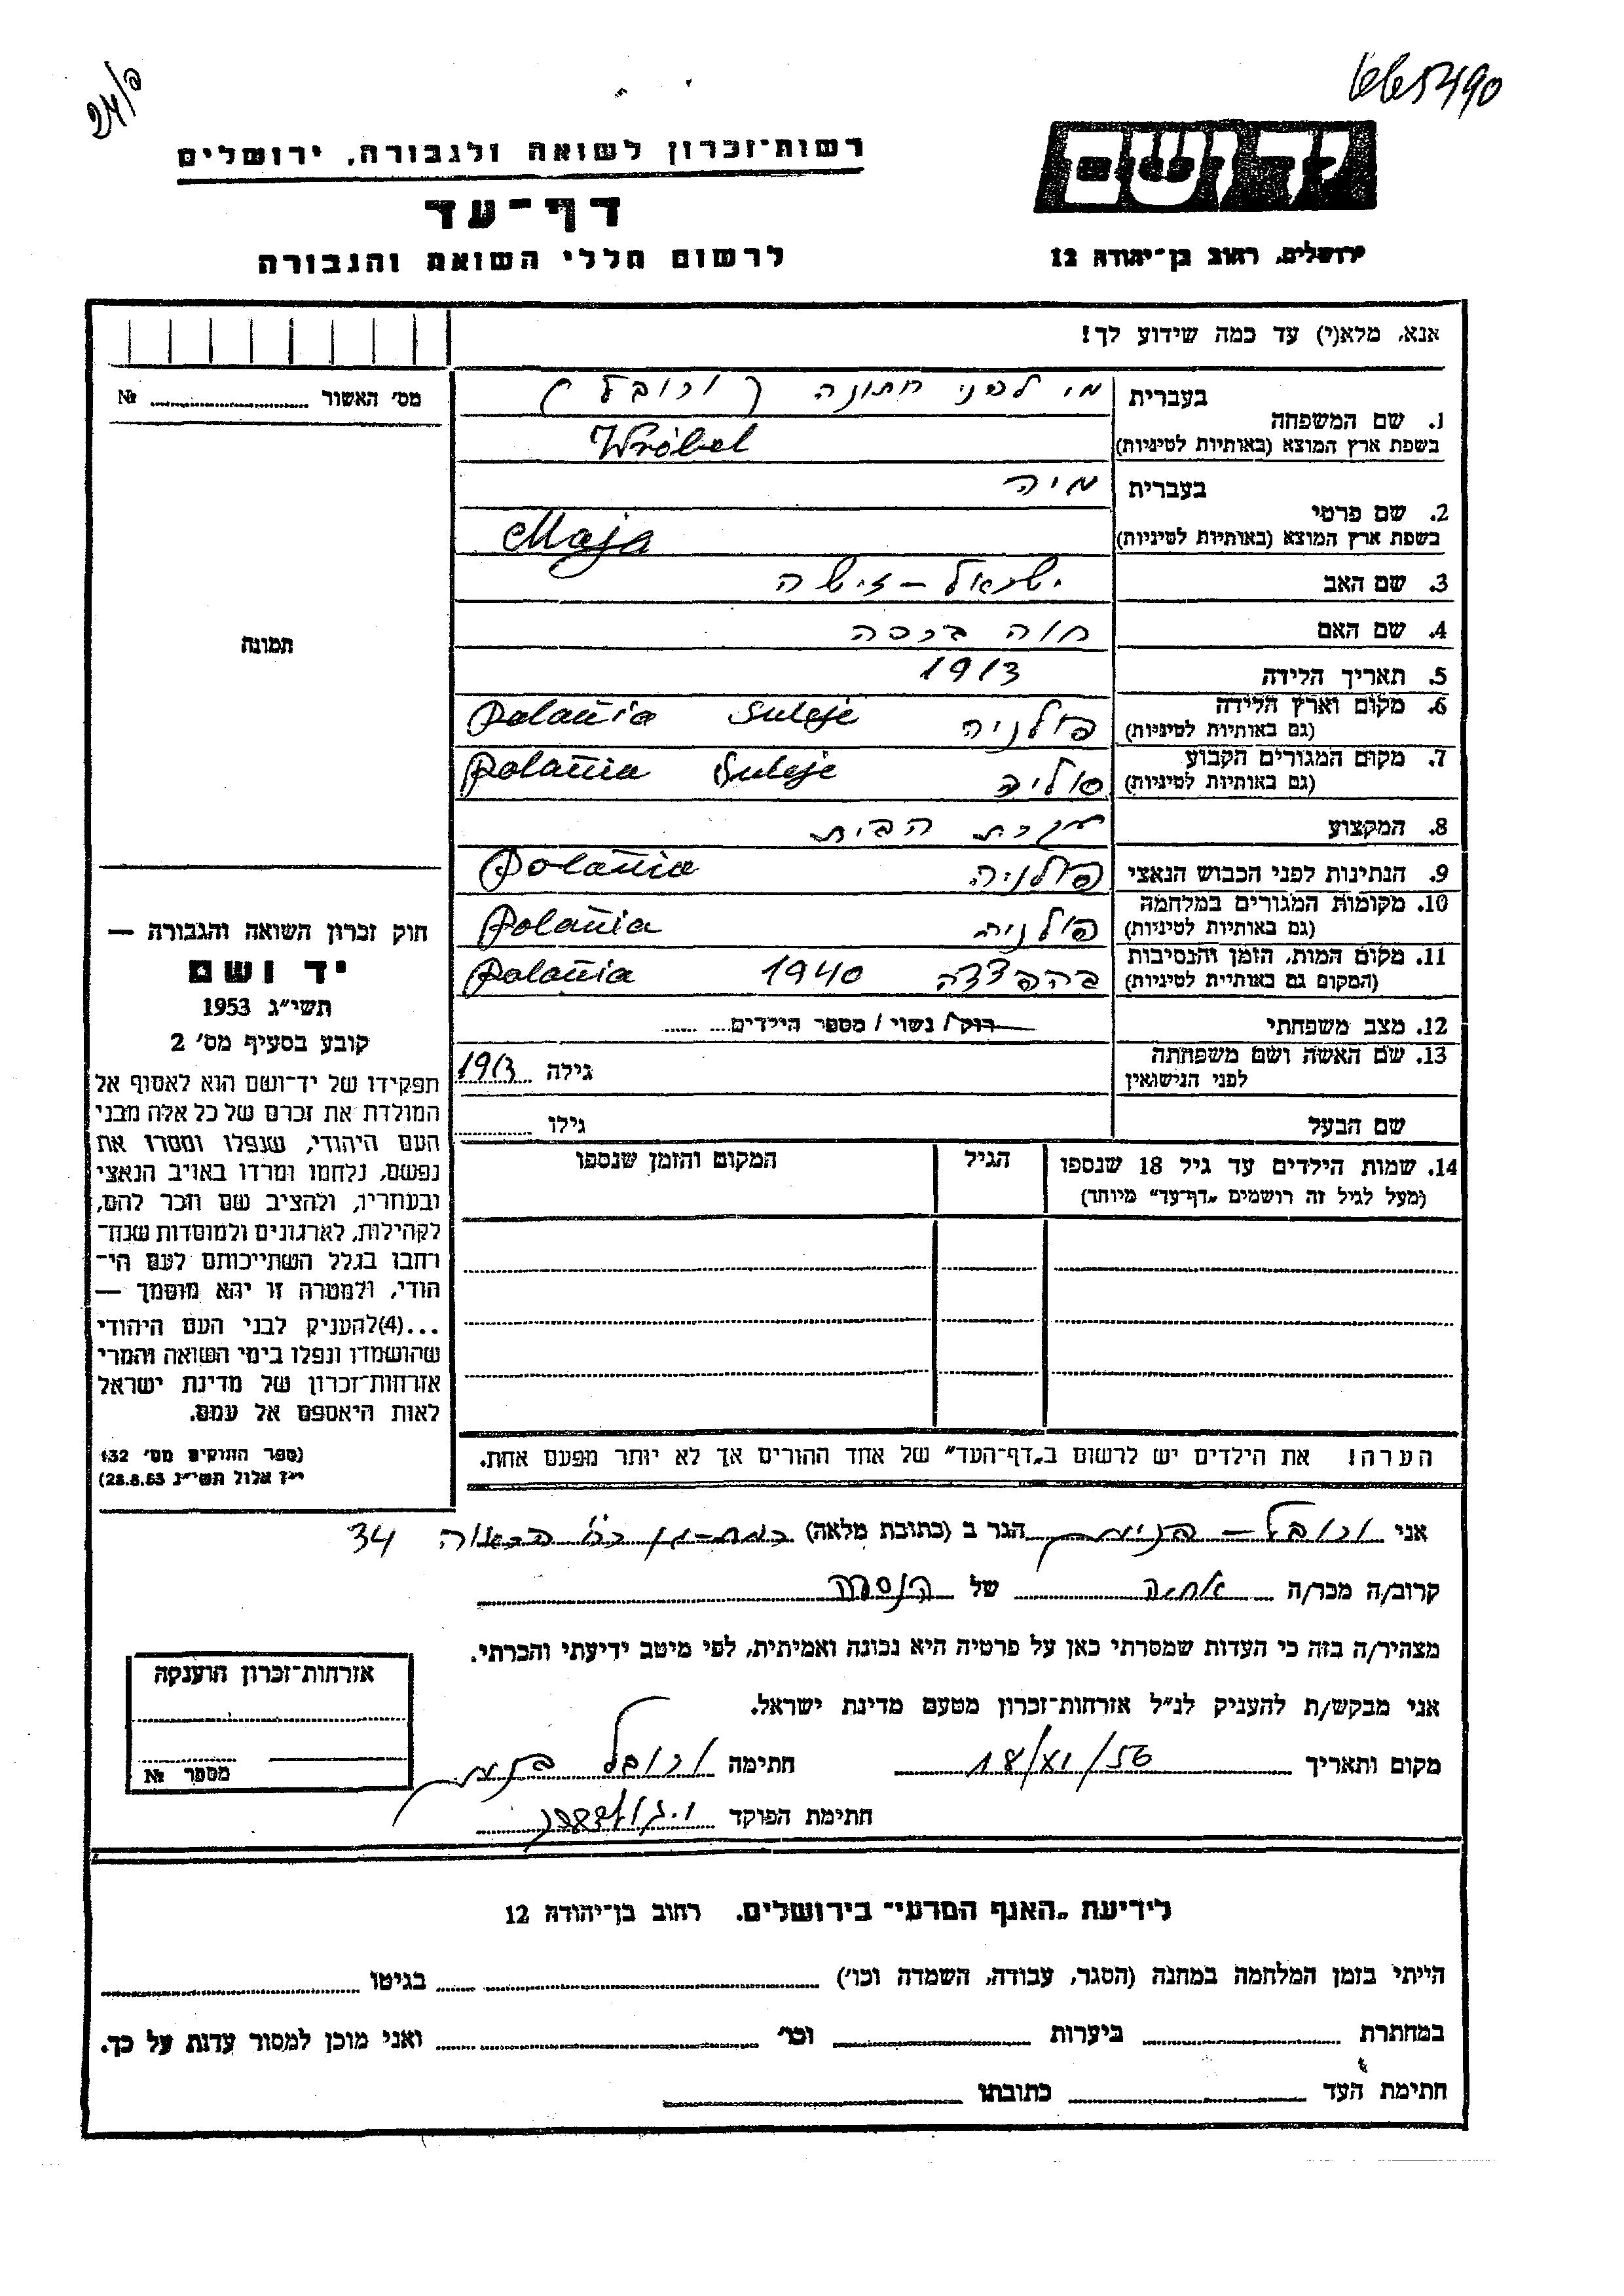 665490
24/פ
רשות־זכרון לשואה ולגבורה, ירושלים
יד ושם
דף־עד
ירושלים, רחוב בן־יהודה 12
לרשום חללי השואה והגבורה
אנא, מלא(י) עד כמה שידוע לך!
מס׳ האשור № ........
1. שם המשפחה
בעברית לפני חתונה (ורובל)
בשפת ארץ המוצא (באותיות לטיניות) Wróbel
2. שם פרטי
בעברית מיה
בשפת ארץ המוצא (באותיות לטיניות) Maja
3. שם האב ישראל – זישה
4. שם האם חוה
5. תאריך הלידה 1913
6. מקום וארץ הלידה
(גם באותיות לטיניות) פולניה Suleje Polania
7. מקום המגורים הקבוע
(גם באותיות לטיניות) Suleje Polania
8. המקצוע הבית
9. הנתינות לפני הכבוש הנאצי פולניה Polania
10. מקומות המגורים במלחמה
(גם באותיות לטיניות) פולניה Polania
11. מקום המות, הזמן והנסיבות
(המקום גם באותיות לטיניות) בהפצצה 1940 Polania
12. מצב משפחתי רוק/ נשוי / מספר הילדים........
13. שם האשה ושם משפחתה
לפני הנישואין גילה 1913
שם הבעל גילו ........
14. שמות הילדים עד גיל 18 שנספו
(מעל לגיל זה רושמים „דף־עד״ מיוחד)
הגיל
המקום והזמן שנספו
הערה: את הילדים יש לרשום ב„דף־העד״ של אחד ההורים אך לא יותר מפעם אחת.
תמונה
חוק זכרון השואה והגבורה —
יד ושם
תשי״ג 1953
קובע בסעיף מס׳ 2
תפקידו של יד־ושם הוא לאסוף אל
המולדת את זכרם של כל אלה מבני
העם היהודי, שנפלו ומסרו את
נפשם, נלחמו ומרדו באויב הנאצי
ובעוזריו, ולהציב שם וזכר להם,
לקהילות, לארגונים ולמוסדות שנח־
רבו בגלל השתייכותם לעם הי־
הודי, ולמטרה זו יהא מוסמך —
...(4)להעניק לבני העם היהודי
שהושמדו ונפלו בימי השואה והמרי
אזרחות־זכרון של מדינת ישראל
לאות היאספם אל עמם.
(ספר החוקים מס׳ 132
י״ז אלול תשי״ג 28.8.53)
אני ורובל – הגר ב (כתובת מלאה) רמת-גן 34
קרוב/ה מכר/ה של
מצהיר/ה בזה כי העדות שמסרתי כאן על פרטיה היא נכונה ואמיתית, לפי מיטב ידיעתי והכרתי.
אני מבקש/ת להעניק לנ״ל אזרחות־זכרון מטעם מדינת ישראל.
מקום ותאריך 18/XI/56 חתימה ורובל
חתימת הפוקד
אזרחות־זכרון הוענקה
מספר №
לידיעת „האגף המדעי״ בירושלים, רחוב בן־יהודה 12
הייתי בזמן המלחמה במחנה (הסגר, עבודה, השמדה וכו׳) ........ בגיטו ........
במחתרת ........ ביערות ........ וכו׳ ........ ואני מוכן למסור עדות על כך.
חתימת העד ........ כתובתו ........